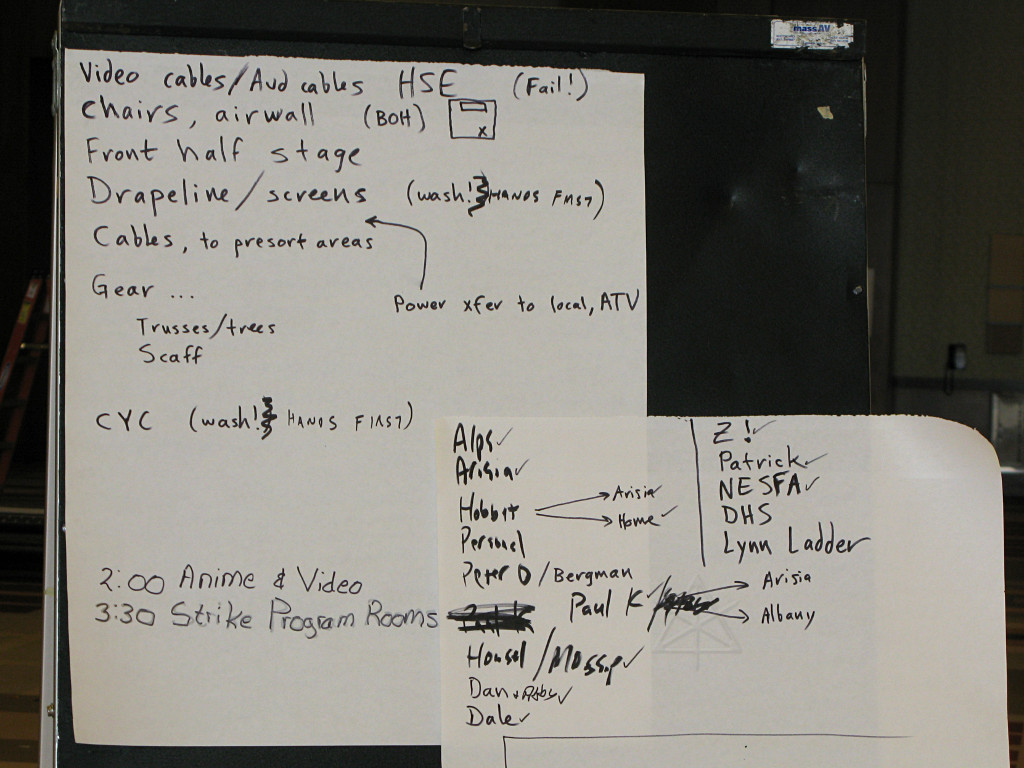 massAV
Video cables/Aud cables HSE (Fail!)
chairs, airwall (BOH) X
Front half stage
Drapeline/screens (wash! HANDS FIRST)
Cables, to presort areas
Gear ...
Power xfer to local, ATV
Trusses/trees
Scaff
CYC (wash! HANDS FIRST)
2:00 Anime & Video
3:30 Strike Program Rooms
Alps ✓
Arisia ✓
Hobbit → Arisia ✓
→ Home ✓
Personal
Peter O/Bergman
Paul K ✓/ → Arisia
→ Albany
Housel/ ✓
Dan + ✓
Dale ✓
Z! ✓
Patrick ✓
NESFA ✓
DHS
Lynn Ladder